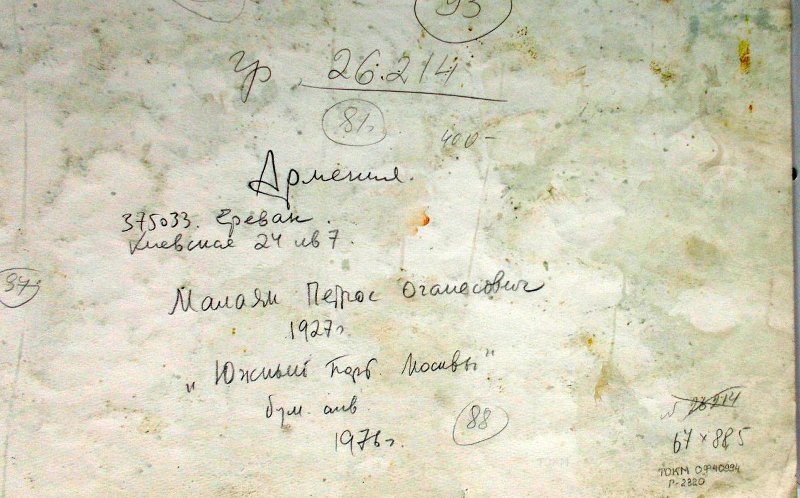 93
гр. 26.214
81г
400-
Армения.
375033. Ереван.
Киевская 24 кв 7.
97г
Малоян Петрос Оганесович
1927г.
"Южный порт. Москвы"
бум. акв.
1976г.
88
№ 26214
67 x 88,5
ТОКМ ОФ 40994
Р-2320